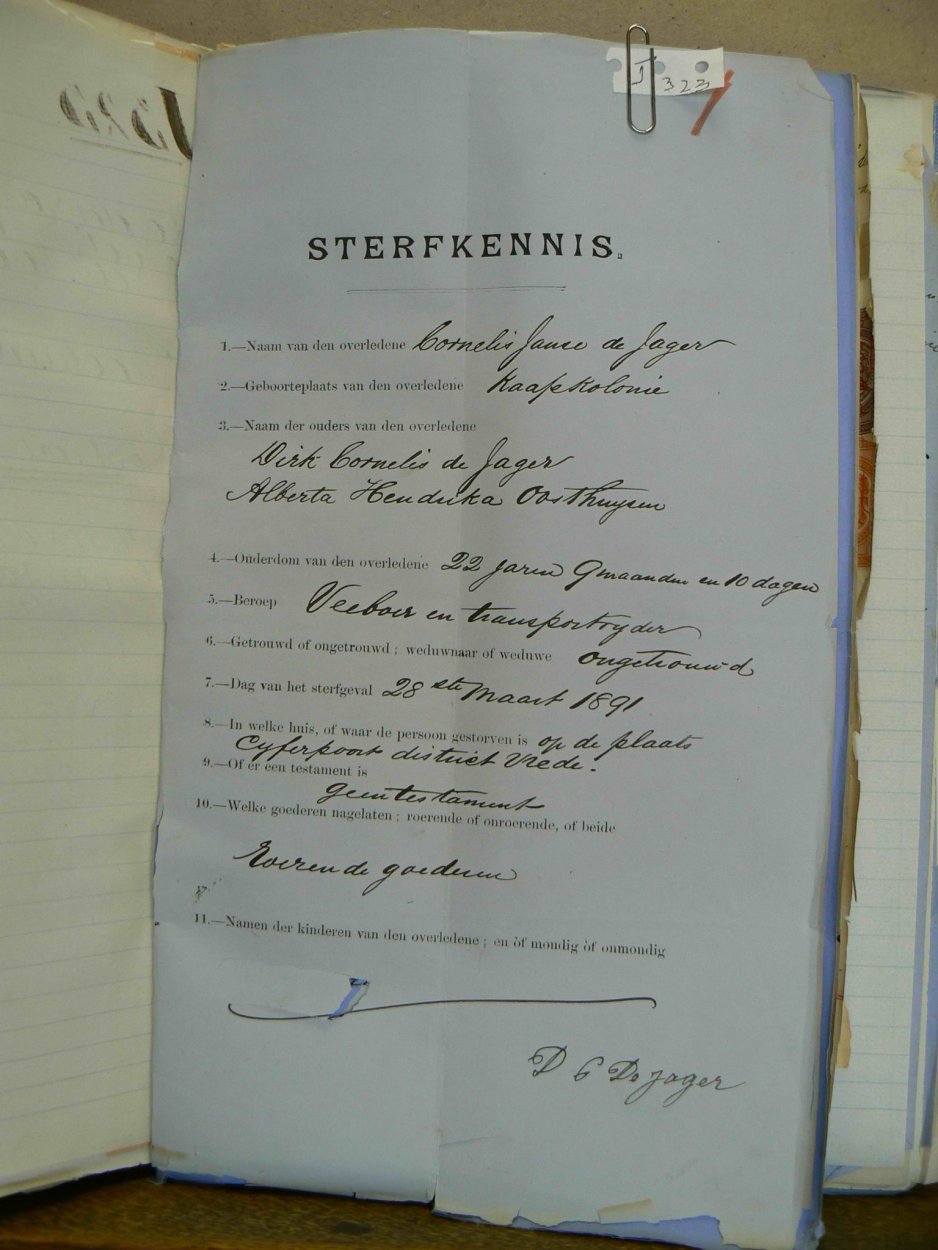 J 323
STERFKENNIS.
1.—Naam van den overledene Cornelis Janse de Jager
2.—Geboorteplaats van den overledene Kaapkolonie
3.—Naam der ouders van den overledene
Dirk Cornelis de Jager
Alberta Hendrika Oosthuysen
4.—Ouderdom van den overledene 22 jaren 9 maanden en 10 dagen
5.—Beroep Veeboer en transportryder
6.—Getrouwd of ongetrouwd ; weduwnaar of weduwe ongetrouwd
7.—Dag van het sterfgeval 28ste Maart 1891
8.—In welke huis, of waar de persoon gestorven is op de plaats
Cyferpoort district Vrede.
9.—Of er een testament is
geen testament
10.—Welke goederen nagelaten ; roerende of onroerende, of beide
Roerende goederen
11.—Namen der kinderen van den overledene ; en òf mondig òf onmondig
D C De Jager